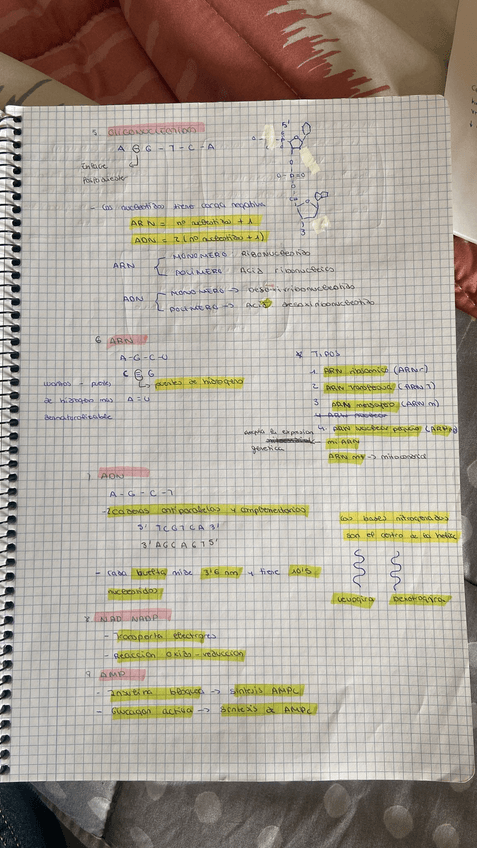 5. OLIGONUCLEOTIDOS
A G - T - C - A
Enlace
fosfodiester
5'
3
- Los nucleotidos tienen carga negativa
ARN = nº nucleotidos + 1
ADN = 2 (nº nucleotidos + 1)
ARN
MONOMERO: Ribonucleotido
POLIMERO: Acid ribonucleico
ADN
MONOMERO → Desoxirribonucleotido
POLIMERO → Acid desoxirribonucleotido
6. ARN
A - G - C - U
C ≡ G
puentes de hidrogeno
de hidrogeno mas A = U
desnaturalizable
* TIPOS
1. ARN ribosomico (ARN r)
2. ARN transferencia (ARN T)
3. ARN mensajero (ARN m)
4. ARN nuclear pequeño
mi ARN
genetica
ARN mt → mitocondrial
7. ADN
A - G - C - T
- 2 cadenas antiparalelas y complementarias
5' TCGTCA 3'
3' AGCAGT 5'
- Cada vuelta mide 3'6 nm y tiene 10'5
nucleotidos
Las bases nitrogenadas
son el centro de la helice
Levogira Dextrogira
8. NAD NADP
- Transporta electrones
- Reacción oxido-reducción
9. AMP
- Insulina bloquea → sintesis AMPC
- Glucagon activa → sintesis de AMPC